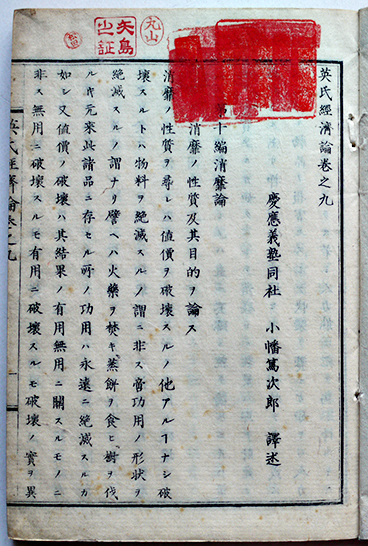 英氏經濟論卷之九
慶應義塾同社 小幡篤次郎 譯述
十編消靡論
消靡ノ性質及其目的ヲ論ス
消靡ノ性質ヲ尋レハ値價ヲ破壊スルノ他アルヿナシ破
壊スルトハ物料ヲ絶滅スルノ謂ニ非ス啻功用ノ形状ヲ
絶滅スルノ謂ナリ譬ヘハ火藥ヲ焚キ蒸餅ヲ食ヒ樹ヲ伐
ルキ元来此諸品ニ存セル所ノ功用ハ永遠ニ絶滅スルカ
如シ又値價ノ破壊ハ其結果ノ有用無用ニ關スルモノニ
非ス無用ニ破壊スルモ有用ニ破壊スルモ破壊ノ實ヲ異
英氏經濟論卷之九
丸山
矢島之証